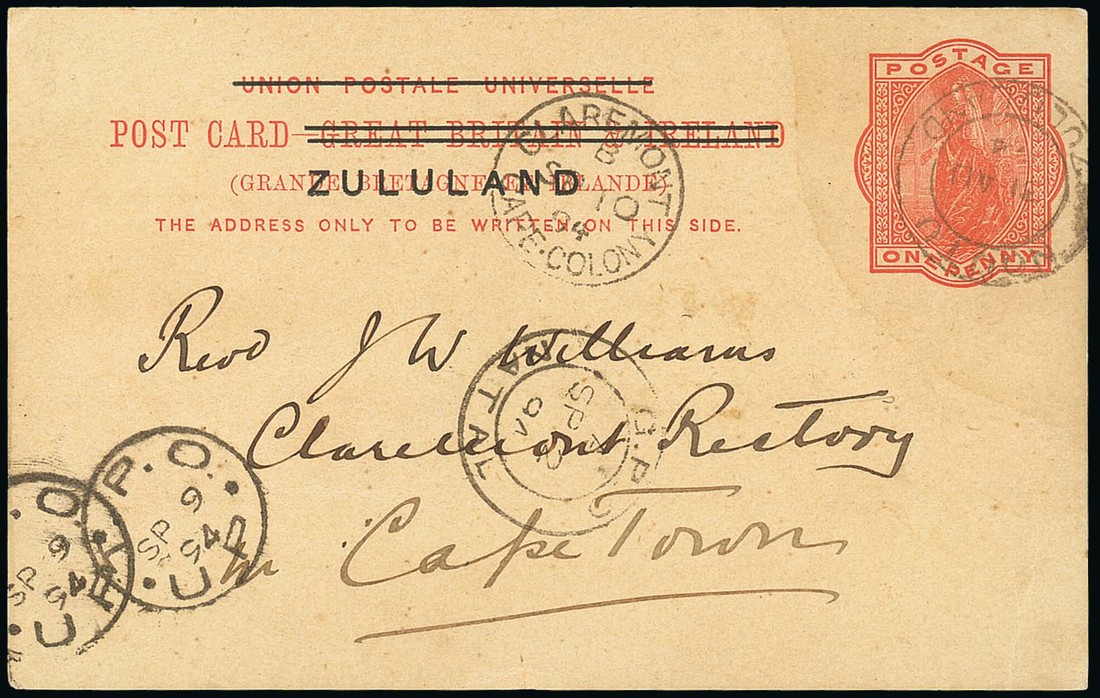 UNION POSTALE UNIVERSELLE
POST CARD—GREAT BRITAIN & IRELAND
(GRANDE BRETAGNE ET IRLANDE)
ZULULAND
THE ADDRESS ONLY TO BE WRITTEN ON THIS SIDE.
POSTAGE
ONE PENNY
CLAREMONT
B
SP 10
94
CAPE·COLONY
Revd J W Williams
Claremont Rectory
Cape Town
NATAL
G.P.O
SP
94
P.O.
SP 9
94
U.H.T.
O
SP 9
94
U